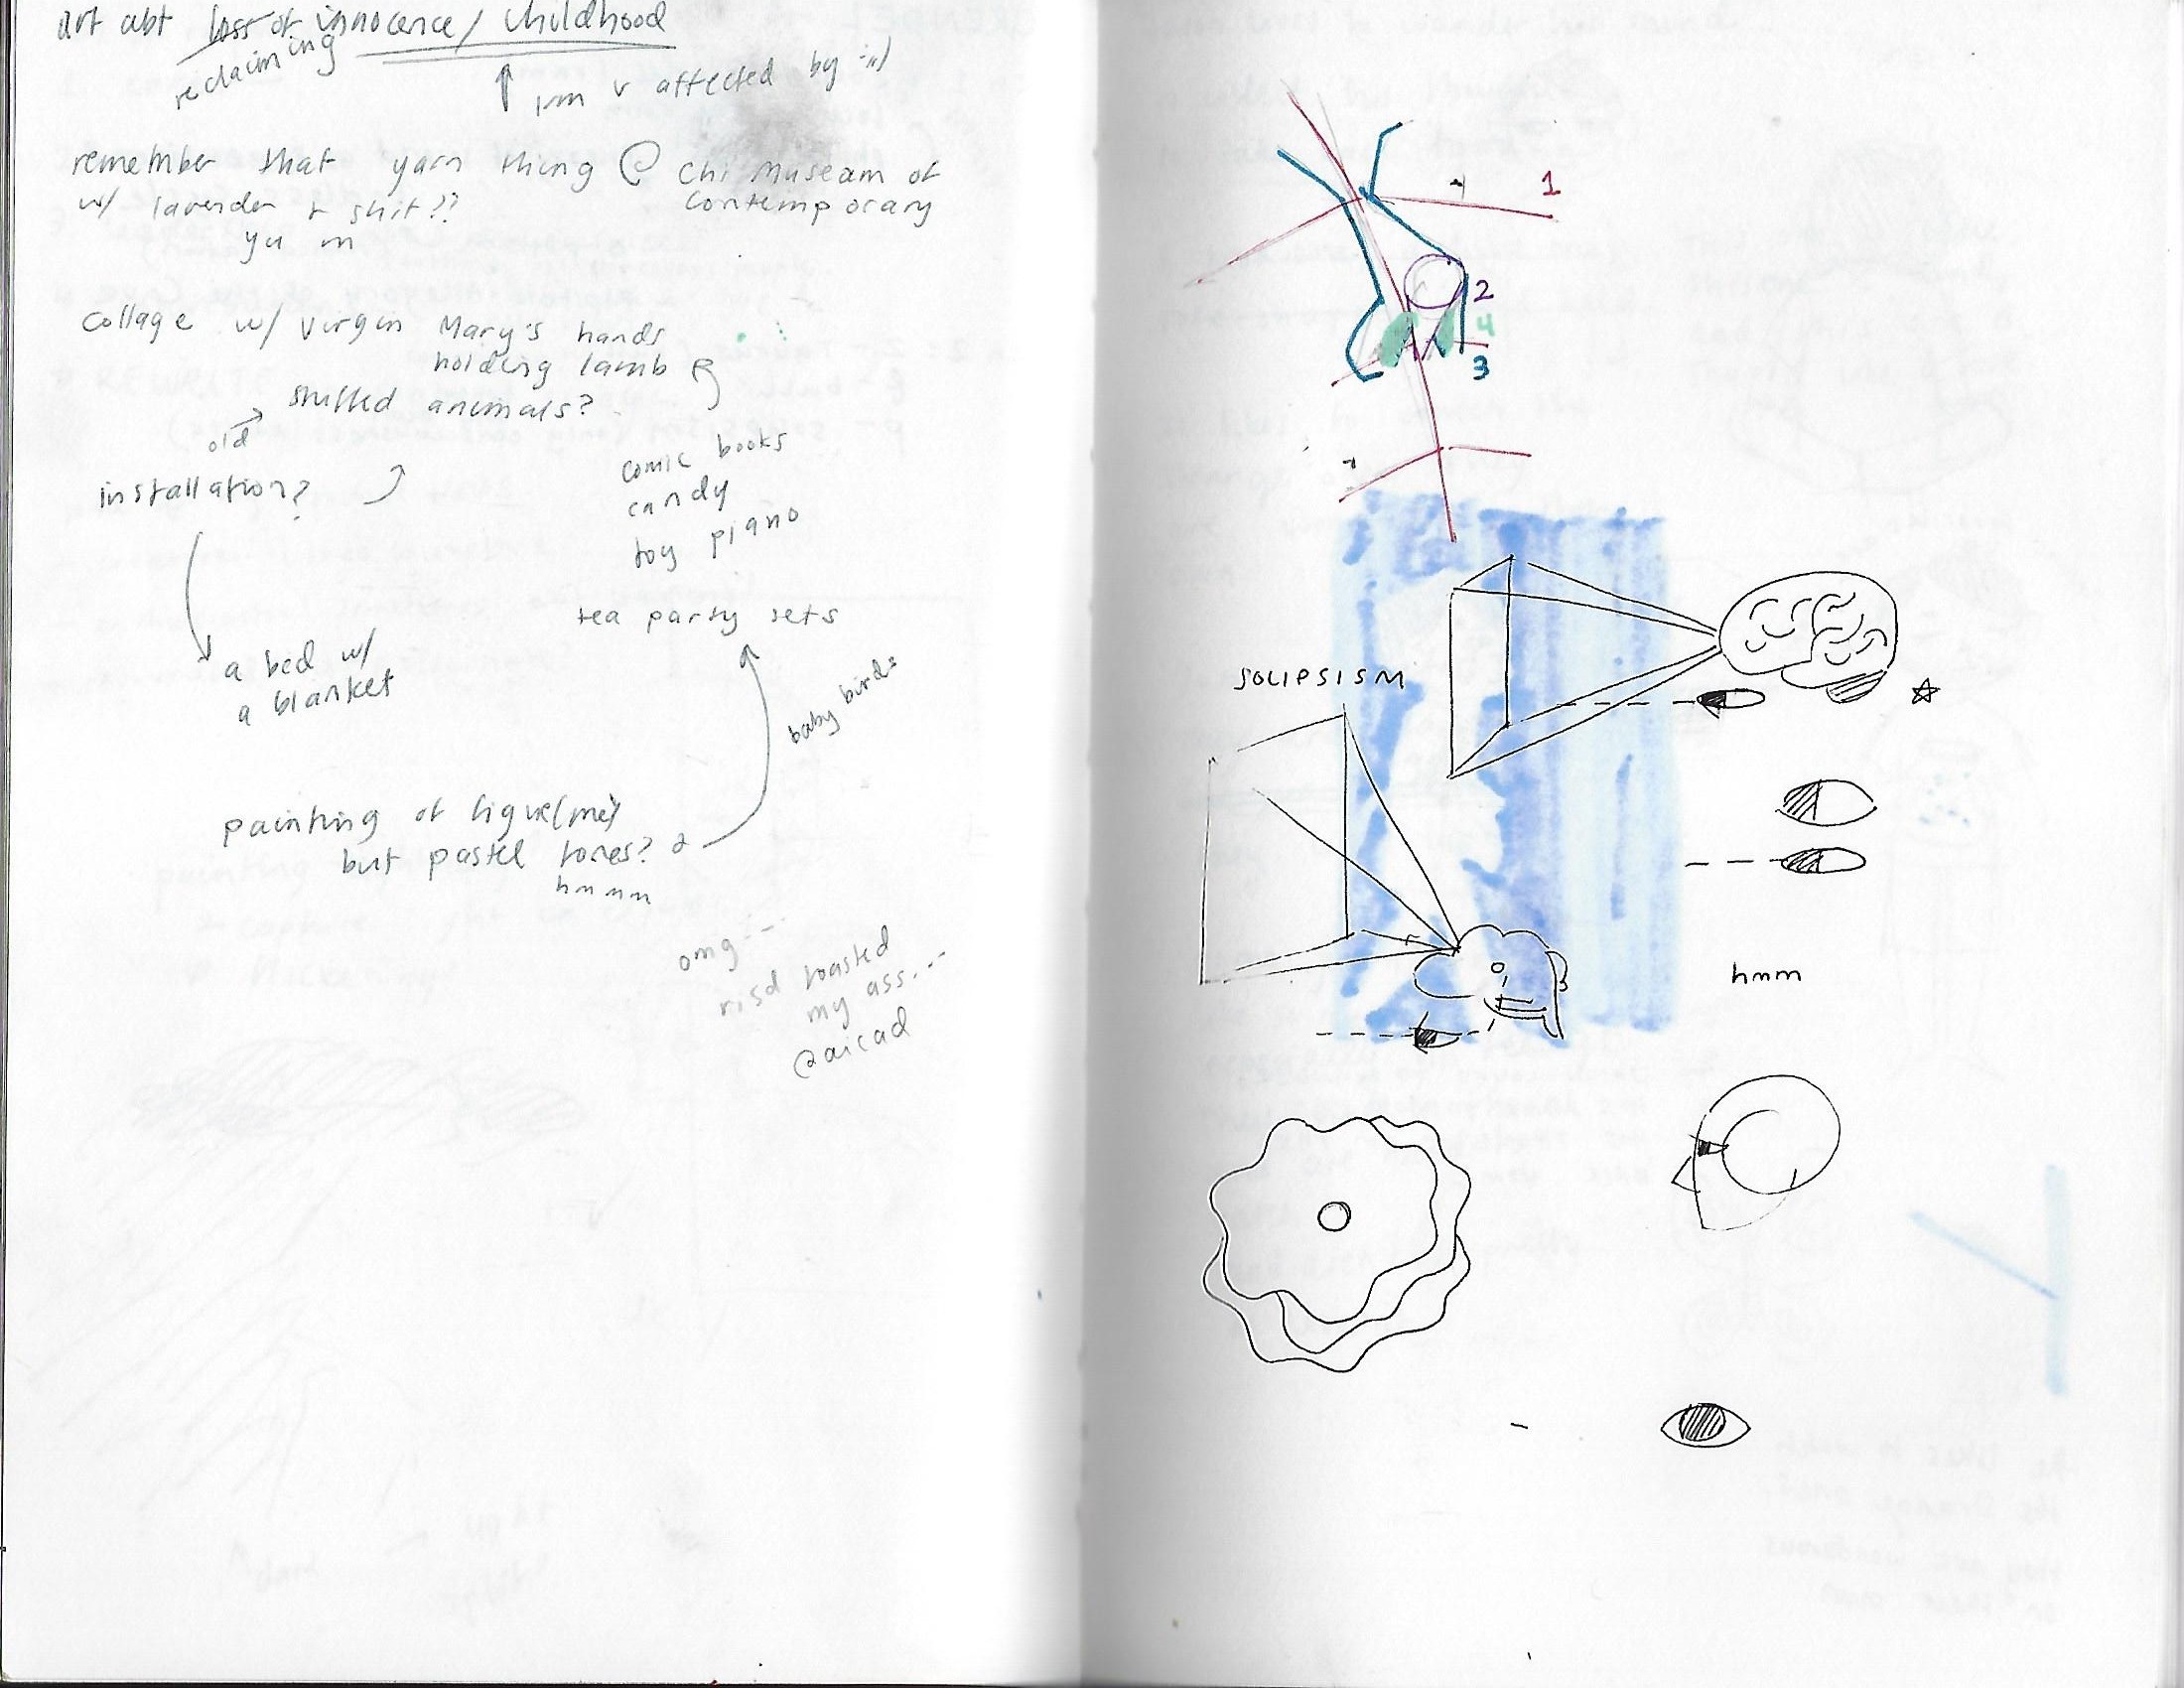 art abt loss of innocence / childhood
reclaiming
i'm v affected by :')
remember that yarn thing @ Chi Museam of
w/ lavender & shit?? Contemporary
collage w/ Virgin Mary's hands
holding lamb
stuffed animals?
old
comic books
installation?
candy
toy piano
tea party sets
a bed w/
a blanket
baby birds
painting of figure(me)
but pastel tones?
hmmm
omg...
risd roasted
my ass...
@aicad
1
2
4
3
SOLIPSISM
hmm